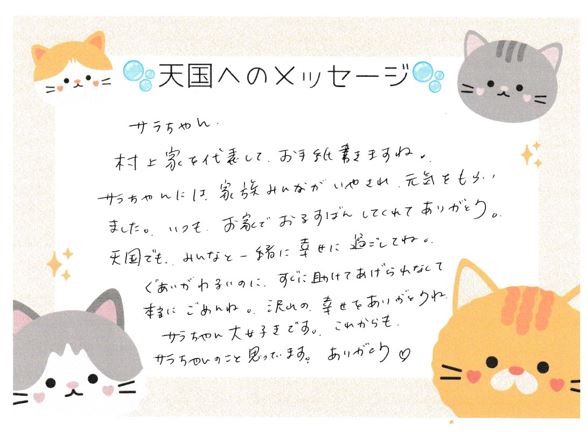 天国へのメッセージ
サラちゃん
村上家を代表して、お手紙書きますね。
サラちゃんには、家族みんながいやされ、元気をもらい
ました。いつも、お家でおるすばんしてくれてありがとう。
天国でも、みんなと一緒に幸せに過ごしてね。
ぐあいがわるいのに、すぐに助けてあげられなくて
本当にごめんね。沢山の幸せをありがとうね
サラちゃん大好きです。これからも、
サラちゃんのこと思っています。ありがとう♡